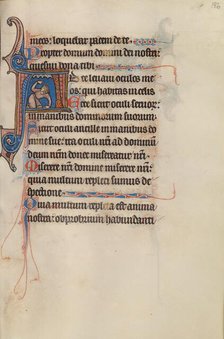 meos: loquebar pacem de te.
Propter domum domini dei nostri:
quesiui bona tibi.
Ad te leuaui oculos meos
qui habitas in celis
Ecce sicut oculi seruorum:
in manibus dominorum suorum
Sicut oculi ancille in manibus do
mine sue: ita oculi nri ad dominum
deum nrm donec misereatur nri.
Miserere nri domine miserere nri:
quia multum repleti sumus de
spectione
Quia multum repleta est anima
nostra: obprobrium habundanti